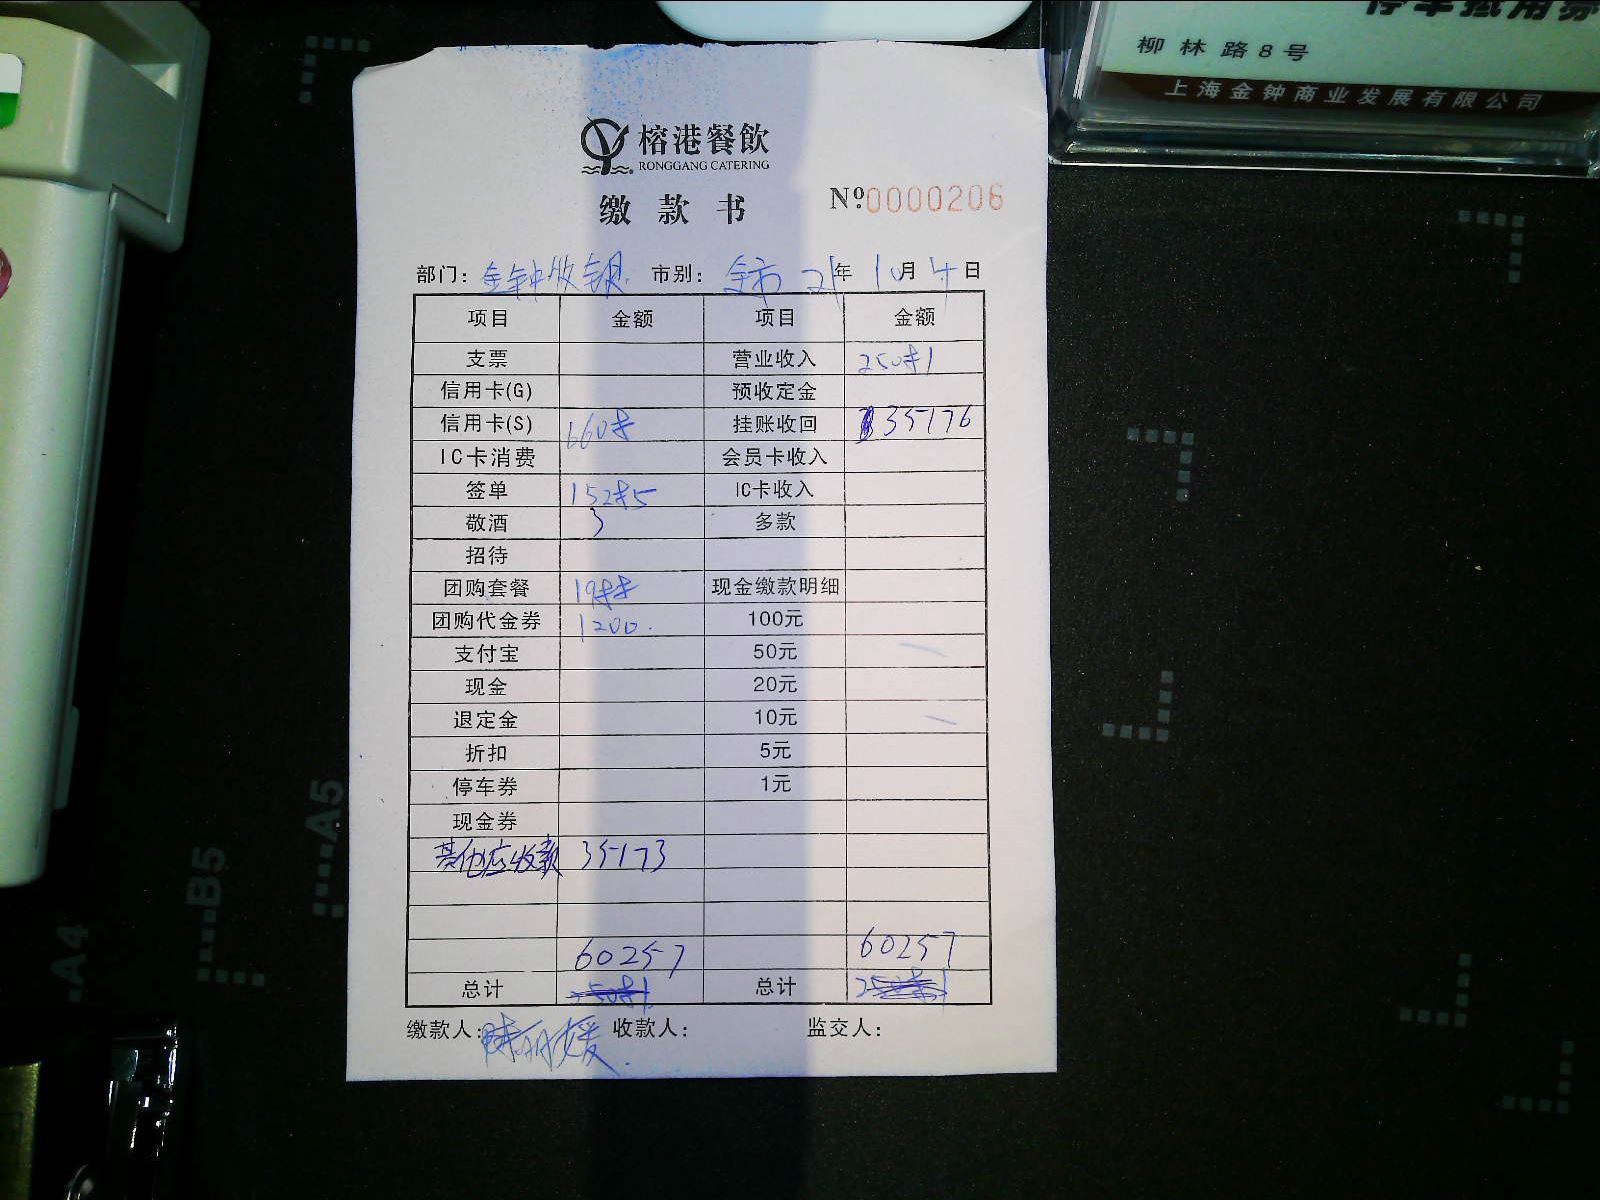 停车抵用券
柳林路8号
上海金钟商业发展有限公司
榕港餐飲
RONGGANG CATERING
缴款书 Nº:0000206
部门: 金钟收银 市别: 全市 21年 10月 4日
项目 金额 项目 金额
支票 营业收入 25081
信用卡(G) 预收定金
信用卡(S) 6608 挂账收回 35176
IC卡消费 会员卡收入
签单 15285 IC卡收入
敬酒 3 多款
招待
团购套餐 1988 现金缴款明细
团购代金券 1200. 100元
支付宝 50元
现金 20元
退定金 10元
折扣 5元
停车券 1元
现金券
其他应收款 35173
60257 60257
总计 25081 总计 25081
缴款人: 收款人: 监交人:
A5
B5
A4